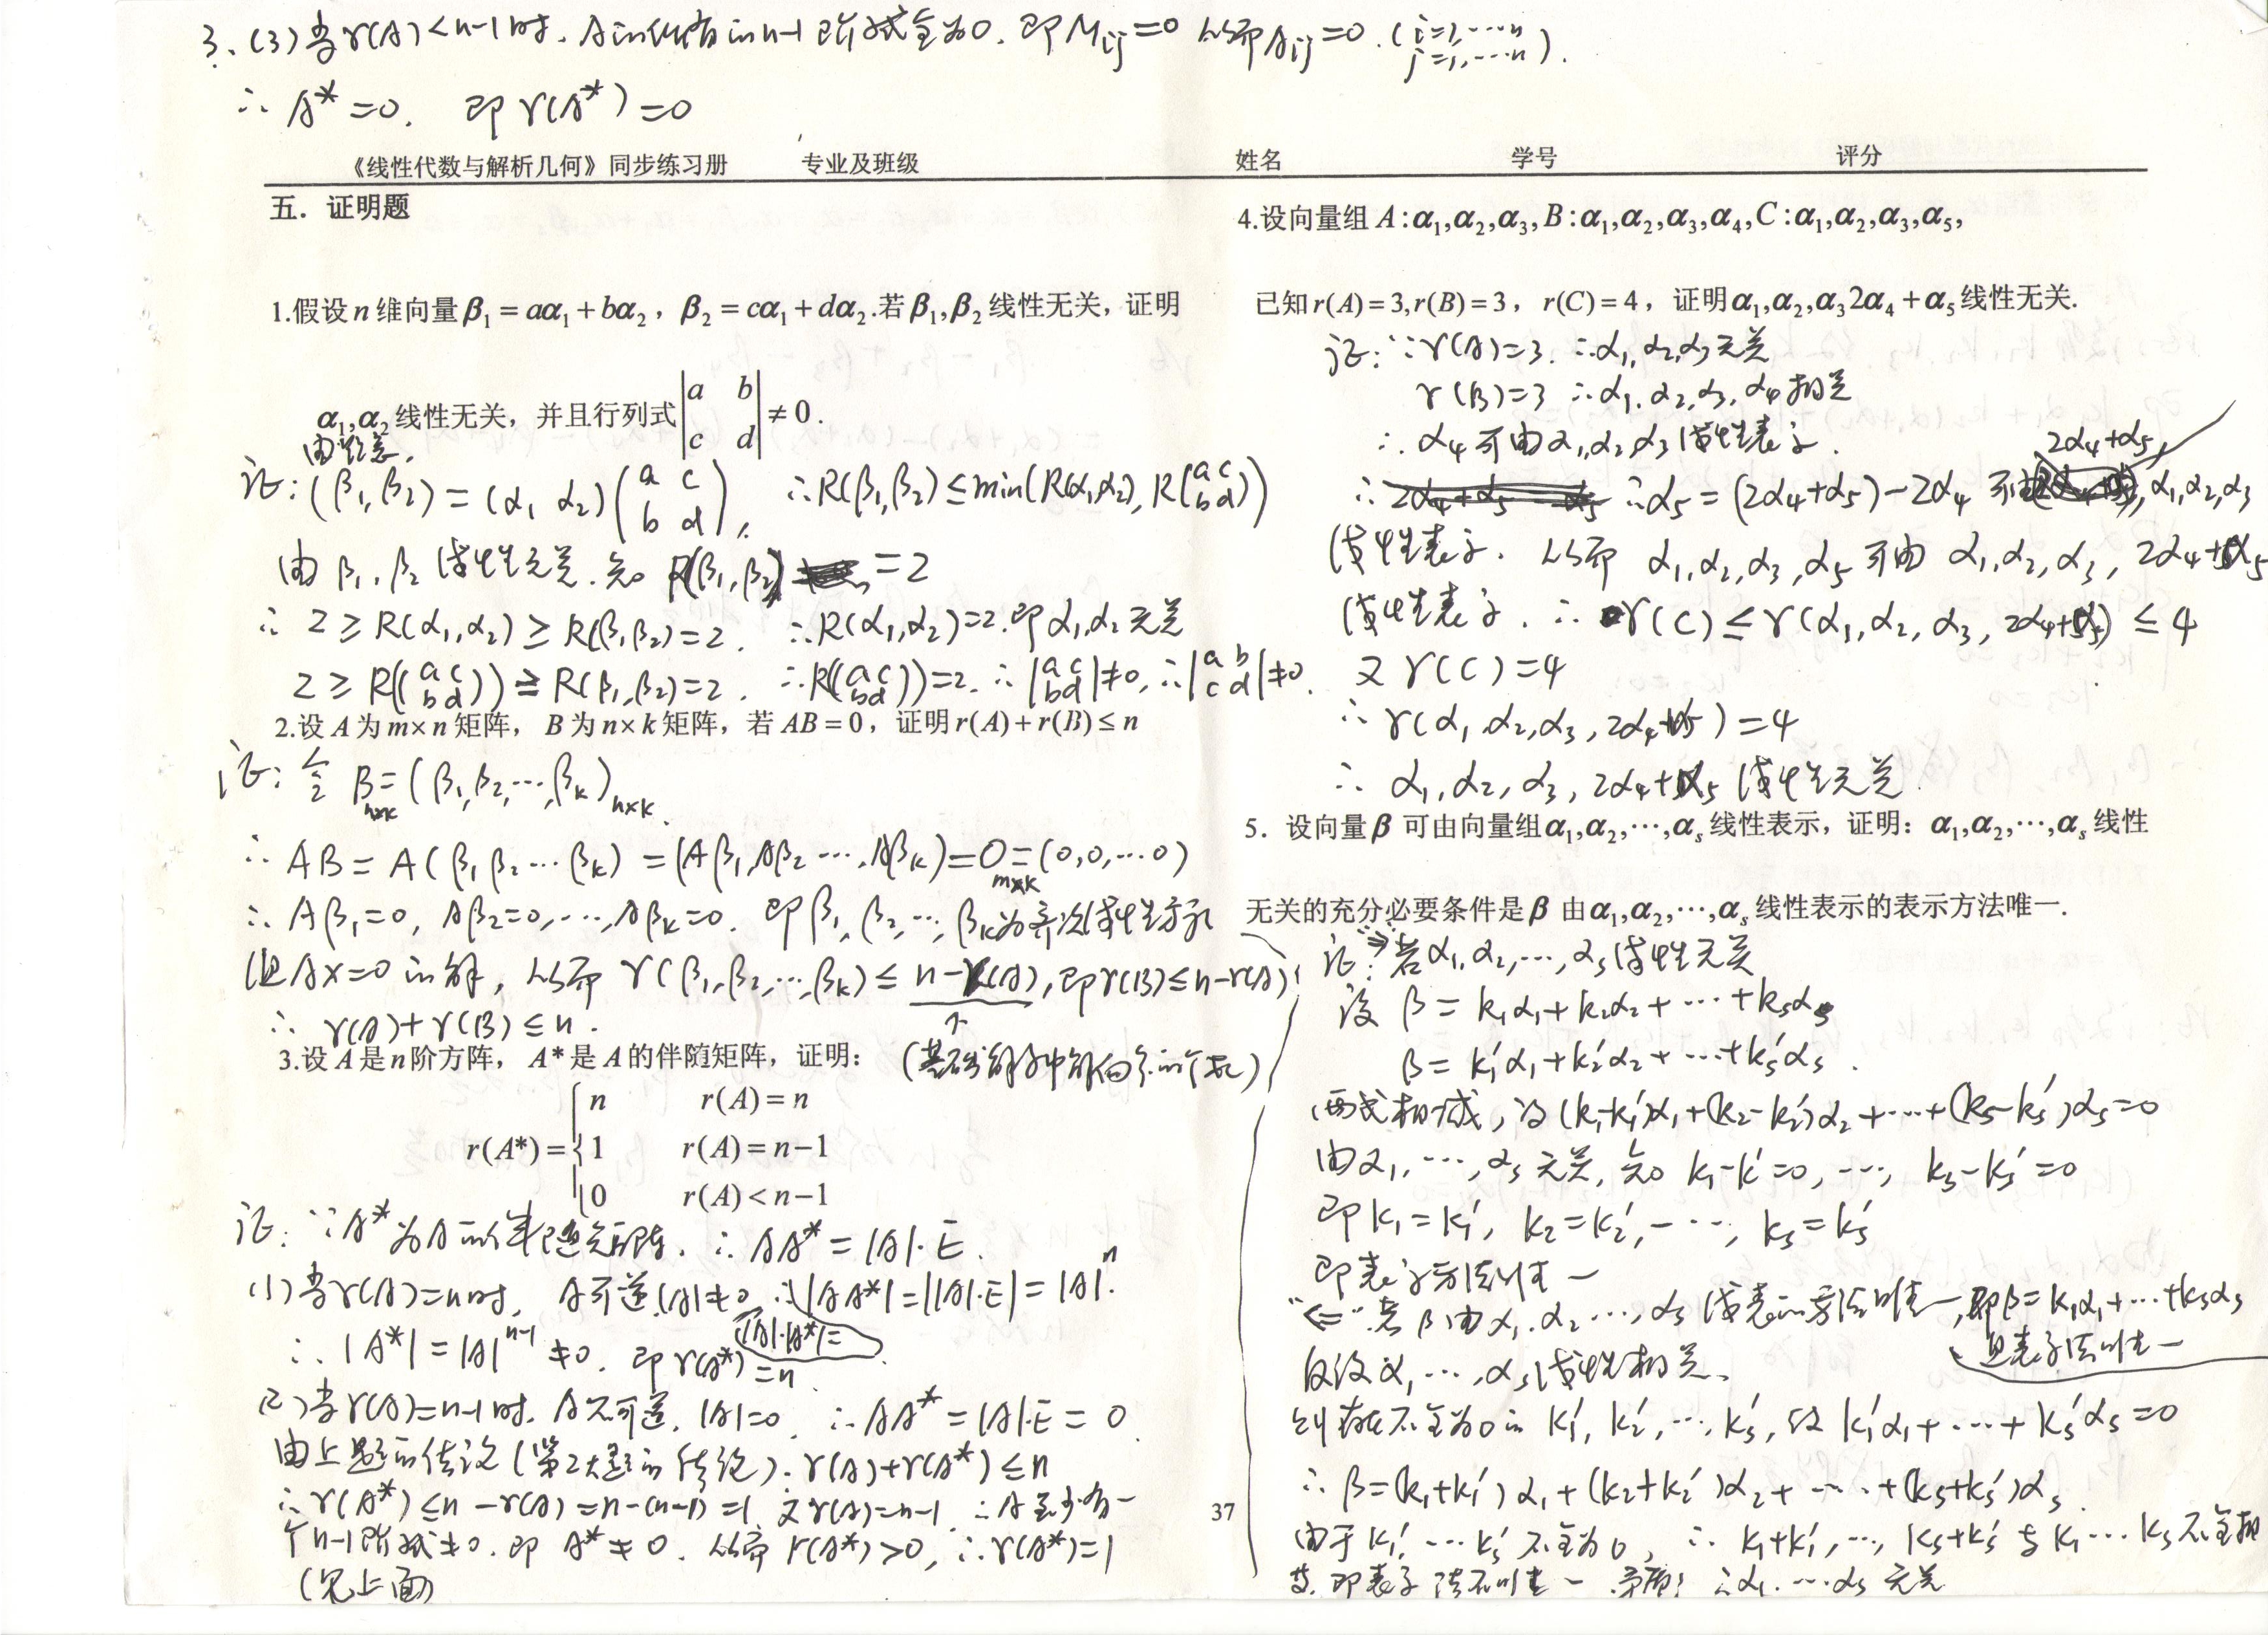 3、(3)当r(A)<n-1时、A的所有的n-1阶子式全为0. 即Mij=0 从而Aij=0.(i=1,…n j=1,…n).
∴ A*=0. 即 r(A*)=0
《线性代数与解析几何》同步练习册 专业及班级 姓名 学号 评分
五．证明题
1.假设n维向量β₁=aα₁+bα₂，β₂=cα₁+dα₂.若β₁,β₂线性无关，证明
α₁,α₂线性无关，并且行列式|a b; c d|≠0.
由题意，
证：(β₁,β₂)=(α₁ α₂)(a c; b d), ∴R(β₁,β₂)≤min(R(α₁,α₂), R(a c; b d))
由β₁,β₂线性无关.知 R(β₁,β₂)=2
∴ 2≥R(α₁,α₂)≥R(β₁,β₂)=2. ∴R(α₁,α₂)=2.即α₁,α₂无关
2≥R((a c; b d))≥R(β₁,β₂)=2. ∴R((a c; b d))=2. ∴|a c; b d|≠0, ∴|a b; c d|≠0.
2.设A为m×n矩阵，B为n×k矩阵，若AB=0，证明r(A)+r(B)≤n
证：令 B n×k=(β₁,β₂,…,βk)n×k.
∴ AB=A(β₁ β₂…βk)=(Aβ₁,Aβ₂…,Aβk)=O m×k=(0,0,…0)
∴ Aβ₁=0, Aβ₂=0,…,Aβk=0. 即β₁,β₂,…,βk为齐次线性方程
组AX=0的解，从而 r(β₁,β₂,…,βk)≤n-r(A),即r(B)≤n-r(A)
∴ r(A)+r(B)≤n.
↑
(基础解系中解向量的个数)
3.设A是n阶方阵，A*是A的伴随矩阵，证明：
n r(A)=n
r(A*)={1 r(A)=n-1
0 r(A)<n-1
证：∵A*为A的伴随矩阵. ∴ AA*=|A|·E.
(1)当r(A)=n时, A可逆,|A|≠0 ∴|AA*|=||A|·E|=|A|ⁿ.
|A|·|A*|=
∴ |A*|=|A|ⁿ⁻¹≠0. 即r(A*)=n.
(2)当r(A)=n-1时. A不可逆. |A|=0. ∴AA*=|A|·E=0.
由上题的结论(第2大题的结论). r(A)+r(A*)≤n
∴r(A*)≤n-r(A)=n-(n-1)=1. 又r(A)=n-1 ∴A至少有一
个n-1阶子式≠0. 即 A*≠0. 从而 r(A*)>0, ∴r(A*)=1
(见上面)
4.设向量组A:α₁,α₂,α₃,B:α₁,α₂,α₃,α₄,C:α₁,α₂,α₃,α₅,
已知r(A)=3,r(B)=3，r(C)=4，证明α₁,α₂,α₃2α₄+α₅线性无关.
证：∵r(A)=3. ∴α₁,α₂,α₃无关
r(B)=3 ∴α₁,α₂,α₃,α₄相关
∴ α₄可由α₁,α₂,α₃线性表示.
2α₄+α₅,
∴ ∴α₅=(2α₄+α₅)-2α₄ 可由 α₁,α₂,α₃
线性表示. 从而 α₁,α₂,α₃,α₅可由 α₁,α₂,α₃,2α₄+α₅
线性表示. ∴ r(C)≤r(α₁,α₂,α₃,2α₄+α₅)≤4
又 r(C)=4
∴ r(α₁,α₂,α₃,2α₄+α₅)=4
∴ α₁,α₂,α₃,2α₄+α₅ 线性无关.
5．设向量β可由向量组α₁,α₂,…,αs线性表示，证明：α₁,α₂,…,αs线性
无关的充分必要条件是β由α₁,α₂,…,αs线性表示的表示方法唯一.
证："⇒"若α₁,α₂,…,αs线性无关
设 β=k₁α₁+k₂α₂+…+ksαs
β=k₁'α₁+k₂'α₂+…+ks'αs.
两式相减，得(k₁-k₁')α₁+(k₂-k₂')α₂+…+(ks-ks')αs=0
由α₁,…,αs无关,知 k₁-k'=0,…, ks-ks'=0
即k₁=k₁', k₂=k₂',…, ks=ks'
即表示方法唯一
"⇐"若β由α₁,α₂…,αs线表的方法唯一,即β=k₁α₁+…+ksαs
且表示法唯一
反设α₁…,αs线性相关、
则存在不全为0的 k₁',k₂',…,ks',使 k₁'α₁+…+ks'αs=0
∴ β=(k₁+k₁')α₁+(k₂+k₂')α₂+…+(ks+ks')αs.
由于k₁',…ks'不全为0, ∴ k₁+k₁',…,ks+ks'与k₁…ks不全相
等. 即表示法不唯一.矛盾! ∴α₁.…αs无关
37